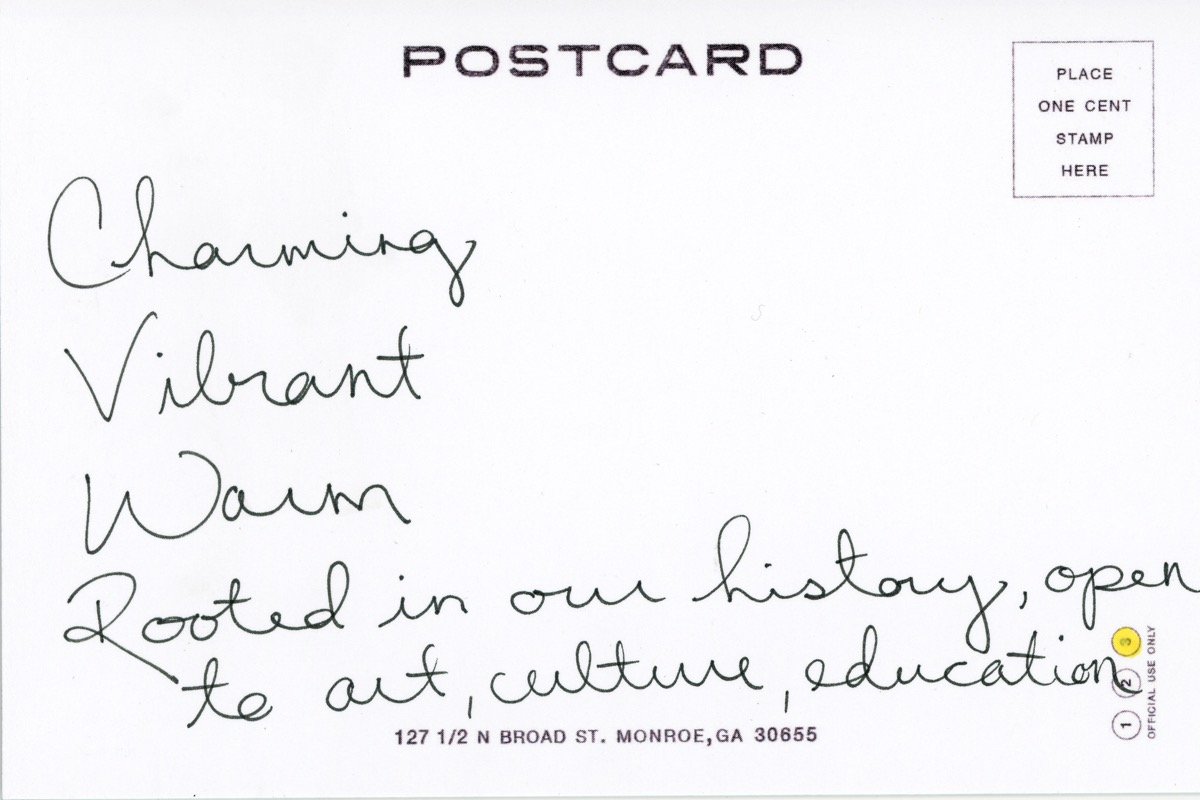 POSTCARD
PLACE
ONE CENT
STAMP
HERE
Charming
Vibrant
Warm
Rooted in our history, open
to art, culture, education
127 1/2 N BROAD ST. MONROE, GA 30655
1 2 3
OFFICIAL USE ONLY